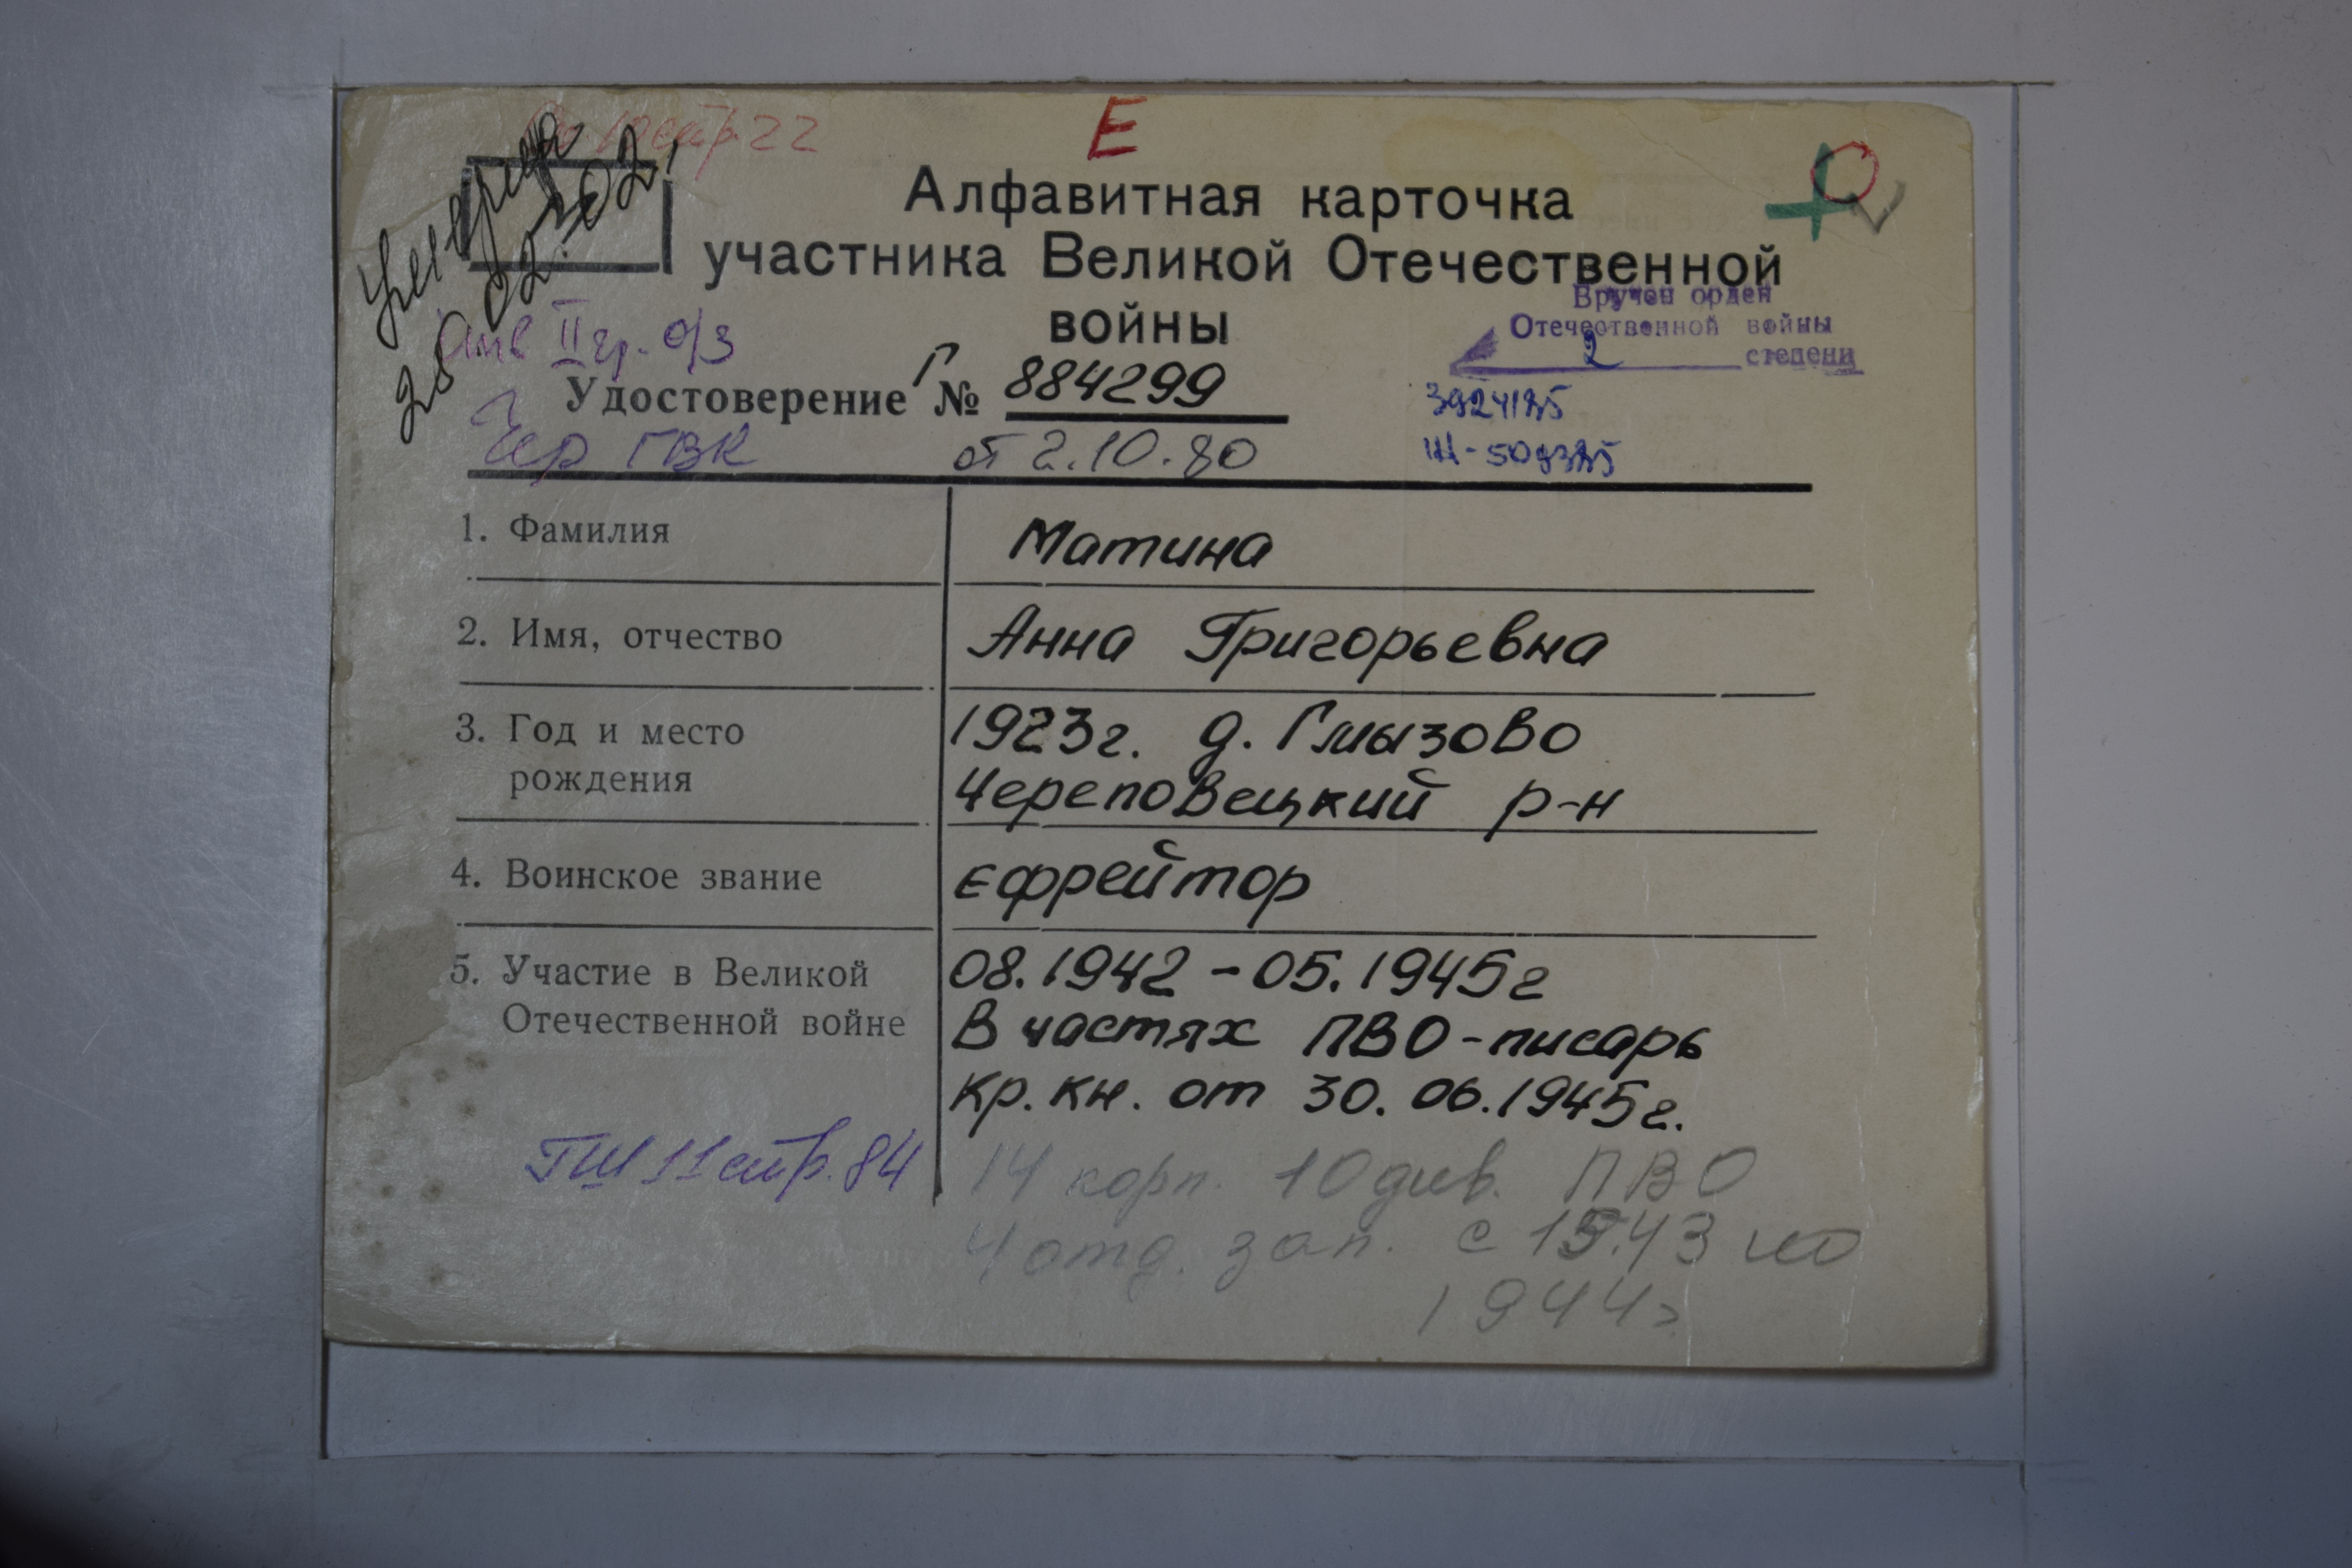 стр. 22
Е
Алфавитная карточка
участника Великой Отечественной
войны
умерла
25.02.2002
Инв II гр. о/з
Вручен орден
Отечественной войны
2 степени
Удостоверение Г № 884299
3924185
Чер ГВК
от 2.10.80
1. Фамилия Матина
2. Имя, отчество Анна Григорьевна
3. Год и место 1923г. д. Глызово
рождения Череповецкий р-н
4. Воинское звание Ефрейтор
5. Участие в Великой 08.1942 - 05.1945г
Отечественной войне В частях ПВО - писарь
кр. кн. от 30.06.1945г.
ГШ 11 стр. 84 14 корп. 10 див. ПВО
4 отд. зап. с 1943 по
1944г.